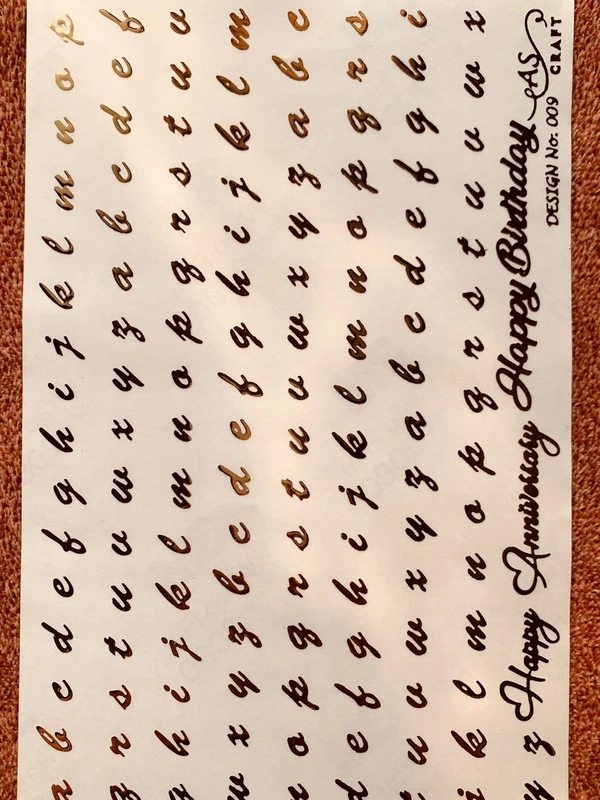 a b c d e f g h i j k l m n o p
q r s t u v w x y z a b c d e f
g h i j k l m n o p q r s t u v
w x y z b c d e f g h i j k l m
n o p q r s t u v w x y z a b c
d e f g h i j k l m n o p q r s
u v w x y z a b c d e f g h i
k l m n o p q r s t u v w x
y z Happy Anniversary Happy Birthday
AS
CRAFT
DESIGN No: 009